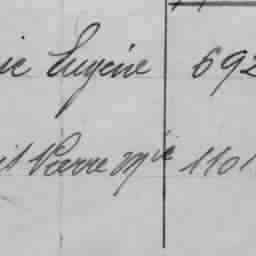 ic Eugène 692
it Pierre Mie 1101